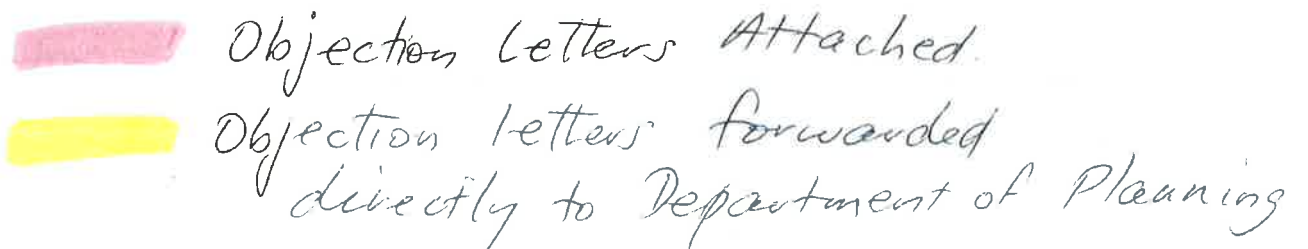 Objection Letters Attached.
Objection letters forwarded
directly to Department of Planning